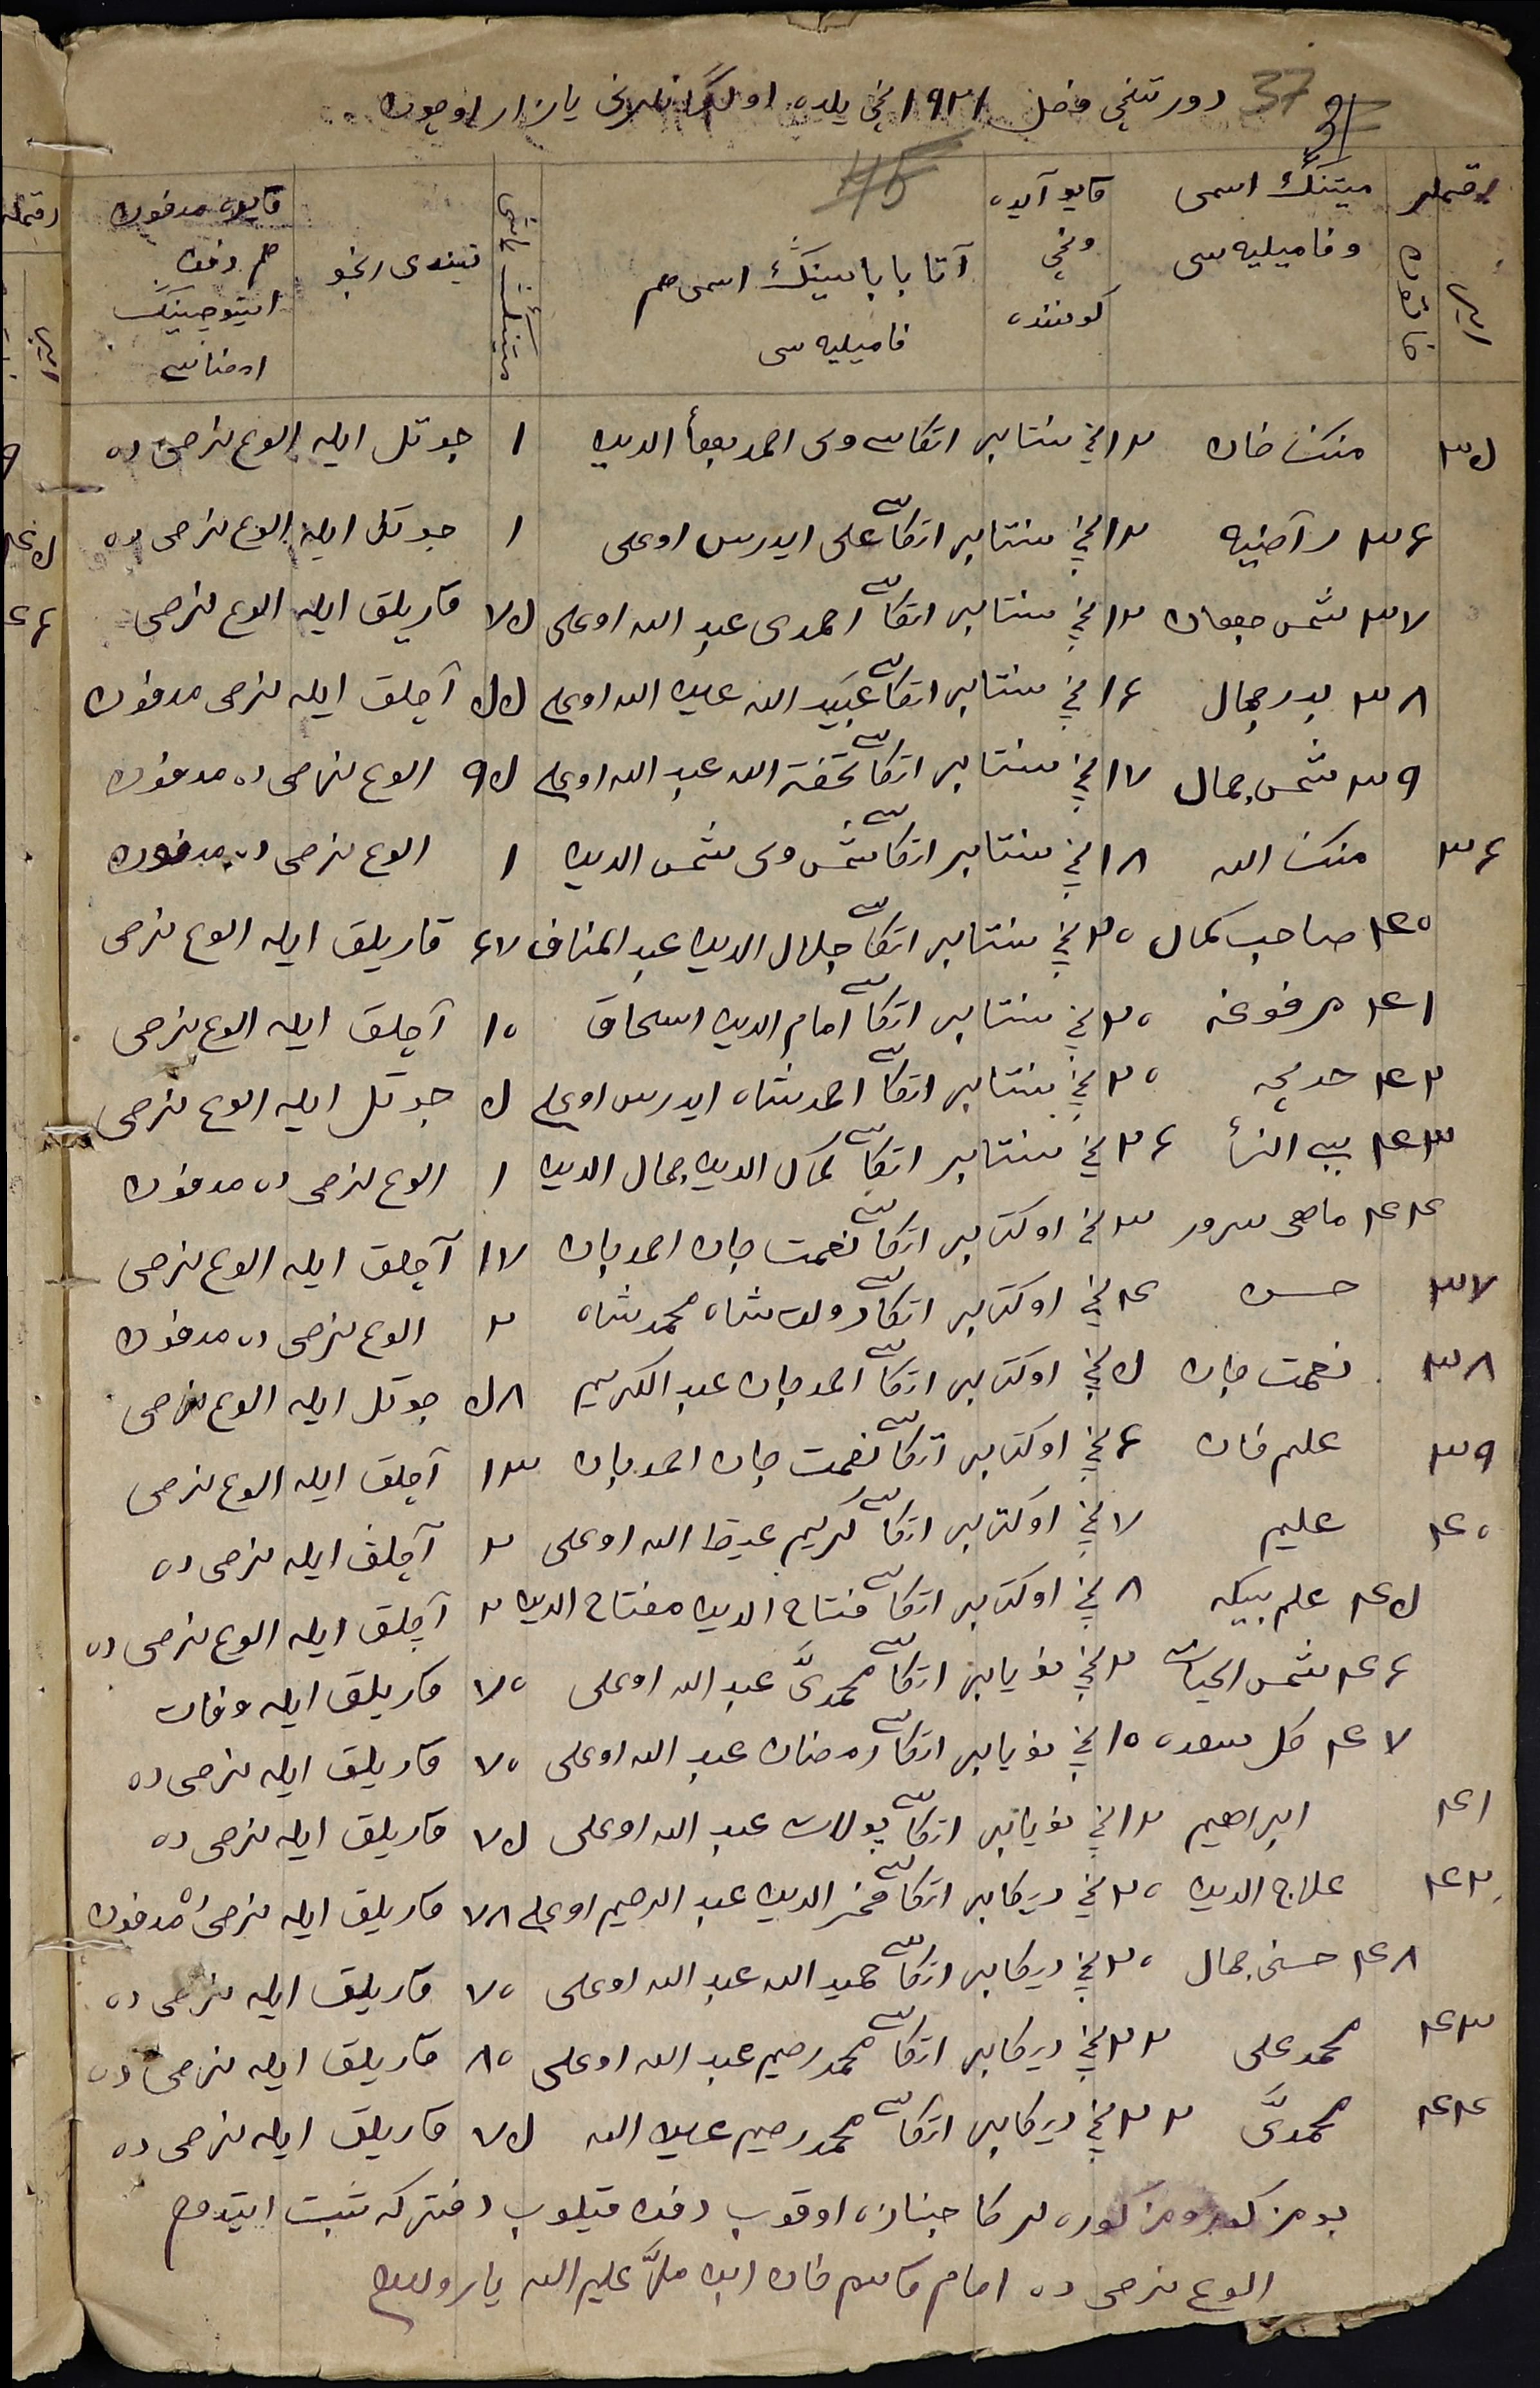 37 دورتنچی فصل ۱۹۲۱ نچی یلده اولگانلرنی یازار اوچون
رقملر
میتنڭ اسمی و فامیلیه سی
قایو آیده ونچی کوننده
آتا باباسینڭ اسمی هم فامیلیه سی
میتنڭ یاشی
نیندی رنجو
قایده مدفون هم دفن ایتوچینڭ امضاسی
۳۵ منک خان ۱۲ نچی سنتابر اتکاسی ولی احمد بهأ الدین ۱ جوتل ایله الوغ نرصی ده
۳۶ رآضیه ۱۲ نچی سنتابر اتکاسی علی ایدرس اوغلی ۱ جوتل ایله الوغ نرصی ده
۳۷ شمس جهان ۱۲ نچی سنتابر اتکاسی احمدی عبد الله اوغلی ۷۵ قاریلق ایله الوغ نرصی
۳۸ بدر جمال ۱۶ نچی سنتابر اتکاسی عبید الله عبد الله اوغلی ۵۵ آچلق ایله نرصی مدفون
۳۹ شمس جمال ۱۷ نچی سنتابر اتکاسی تحفة الله عبد الله اوغلی ۵۹ الوغ نرصی ده مدفون
۳۶ منک الله ۱۸ نچی سنتابر اتکاسی شمس ولی شمس الدین ۱ الوغ نرصی ده مدفون
۴۰ صاحب کمال ۲۰ نچی سنتابر اتکاسی جلال الدین عبد المناف ۶۷ قاریلق ایله الوغ نرصی
۴۱ مرفوعه ۲۰ نچی سنتابر اتکاسی امام الدین اسحاق ۱۰ آچلق ایله الوغ نرصی
۴۲ خدیجه ۲۰ نچی سنتابر اتکاسی احمدشاه ایدرس اوغلی ۵ جوتل ایله الوغ نرصی
۴۳ بیبی النسأ ۲۶ نچی سنتابر اتکاسی کمال الدین جمال الدین ۱ الوغ نرصی ده مدفون
۴۴ ماهی سرور ۳ نچی اوکتابر اتکاسی نعمت جان احمدجان ۱۷ آچلق ایله الوغ نرصی
۳۷ حسن ۴ نچی اوکتابر اتکاسی دولت شاه محمد شاه ۲ الوغ نرصی ده مدفون
۳۸ نعمت جان ۵ نچی اوکتابر اتکاسی احمدجان عبد الکریم ۵۸ جوتل ایله الوغ نرصی
۳۹ علم خان ۶ نچی اوکتابر اتکاسی نعمت جان احمدجان ۱۳ آچلق ایله الوغ نرصی
۴۰ علیم ۷ نچی اوکتابر اتکاسی کریم الله اوغلی ۲ آچلق ایله نرصی ده
۴۵ علم بیکه ۸ نچی اوکتابر اتکاسی فتاح الدین مفتاح الدین ۲ آچلق ایله الوغ نرصی ده
۴۶ شمس الحیات ۲ نچی نویابر اتکاسی محمدیَّ عبد الله اوغلی ۷۰ قاریلق ایله وفات
۴۷ کل سعده ۱۰ نچی نویابر اتکاسی رمضان عبد الله اوغلی ۷۰ قاریلق ایله نرصی ده
۴۱ ابراهیم ۱۲ نچی نویابر اتکاسی بولات عبد الله اوغلی ۷۵ قاریلق ایله نرصی ده
۴۲ علاج الدین ۲۰ نچی دیکابر اتکاسی فخر الدین عبد الرحیم اوغلی ۷۸ قاریلق ایله نرصی مدفون
۴۸ حسنی جمال ۲۰ نچی دیکابر اتکاسی حمید الله عبد الله اوغلی ۷۰ قاریلق ایله نرصی ده
۴۳ محمد علی ۲۲ نچی دیکابر اتکاسی محمد رحیم عبد الله اوغلی ۸۰ قاریلق ایله نرصی ده
۴۴ محمدیَّ ۲۲ نچی دیکابر اتکاسی محمد رحیم عبد الله ۷۵ قاریلق ایله نرصی ده
بو مزکور و مزکوره لرکا جنازه اوقوب دفن قیلوب دفترکه ثبت ایتدوم
الوغ نرصی ده امام قاسم خان ابن ملاَّ علیم الله